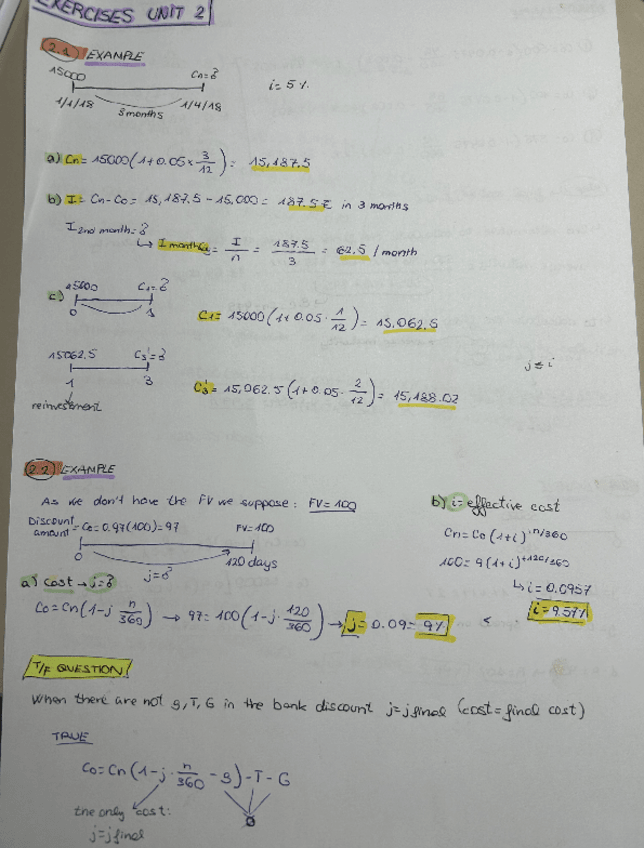 EXERCISES UNIT 2
2.1 EXAMPLE
15000 Cn=? i=5%
1/1/18 3 months 1/4/18
a) Cn = 15000(1+0.05×3/12) = 15,187.5
b) I = Cn-Co = 15,187.5 - 15,000 = 187.5€ in 3 months
I 2nd month=?
↳ I month = I/n = 187.5/3 = 62.5 / month
c) 15000 C1=?
0 1
C1 = 15000(1+0.05·1/12) = 15,062.5
15062.5 C'3=? j≡i
1 3
C'3 = 15,062.5(1+0.05·2/12) = 15,188.02
reinvestment
2.2 EXAMPLE
As we don't have the FV we suppose: FV=100
Discount amount = Co=0.97(100)=97 FV=100
0 120 days
j=?
a) cost → j=?
Co=Cn(1-j n/360) → 97=100(1-j·120/360) → j=0.09=9%
b) i=effective cost
Cn=Co(1+i)^n/360
100=9(1+i)^+120/360
↳ i=0.0957
i=9.57%
T/F QUESTION
When there are not g, T, G in the bank discount j=jfinal (cost=final cost)
TRUE
Co=Cn(1-j·n/360-g)-T-G
the only cost:
j=jfinal
0